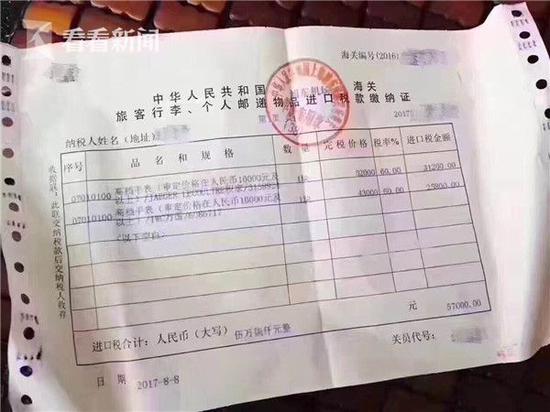 看看新闻
海关编号(2016)
中华人民共和国 海关
旅客行李、个人邮递物品进口税款缴纳证
2017
纳税人姓名(地址)
序号 品名和规格 数量 完税价格 税率% 进口税金额
07010100 高档手表(审定价格在人民币10000元及以上)/JAEGER 52000 60.00 31200.00
07010100 高档手表(审定价格在人民币10000元及以上) 43000 60.00 25800.00
(以下空白)
元 57000.00
进口税合计:人民币(大写) 伍万柒仟元整
关员代号:
日期 2017-8-8
收据联:此联交纳税款后交纳税人收存